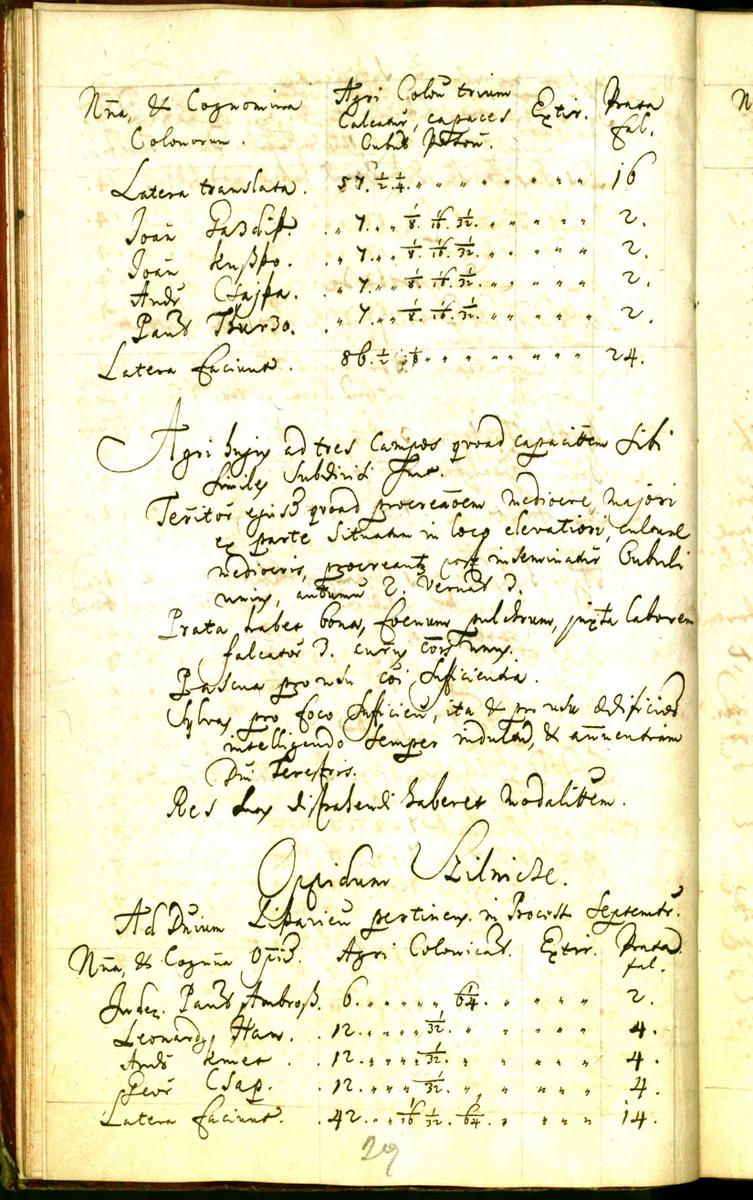 Nna, & Cognomina Agri Colon trium Extir. Prata
Colonorum. Calcatur, capaces fal.
Cubul. Poson.
Latera translata. 57. 1/2 1/4 " " " " " " " 16
Joan . " 7. " " 1/8. 1/16. 1/32. " " " " " 2.
Joan . " 7. " " 1/8. 1/16. 1/32. " " " " " 2.
Andr Csajpa. . " 7. " " 1/8. 1/16. 1/32. " " " " " 2.
Paul . " 7. " " 1/8. 1/16. 1/32. " " " " " 2.
Latera faciunt. 86. 1/2 1/8 " " " " " " " 24.
Agri hujus ad tres Campos quoad capacittem sibi
similes subdivisi sunt.
Territor ejusd quoad procreaoem mediocre, majori
ex parte situatum in loco elevatiori, culturae
mediocris, procreant post inseminatur Cubuli
unius, autumn 2. vernal 3.
Prata habet bona, foenum pulchrum, juxta laborem
falcator 3. currus unus.
Pascua pro usu coi sufficientia.
Sylvas pro foco sufficien, ita & pro usu aedificior
intelligendo semper indultum, & annuentiam
Dni Terestris.
Res suas distrahendi haberet modalittem.
Oppidum Szilnicze.
Ad Dnium Liparicen pertinens in Processu Septemtr.
Nna, & Cognna Opid. Agri Colonical. Extir. Prata
fal.
Judex Paul Ambross. 6. " " " " " 1/64. " " " " 2.
Leonard Han. . 12. " " " " 1/32. " " " " 4.
Andr Kmet . . 12. " " " " 1/32. " " " " 4.
Petr Csap. . 12. " " " " 1/32. " " " " 4.
Latera faciunt. . 42. " " 1/16 1/32. 1/64. " " " " 14.
29